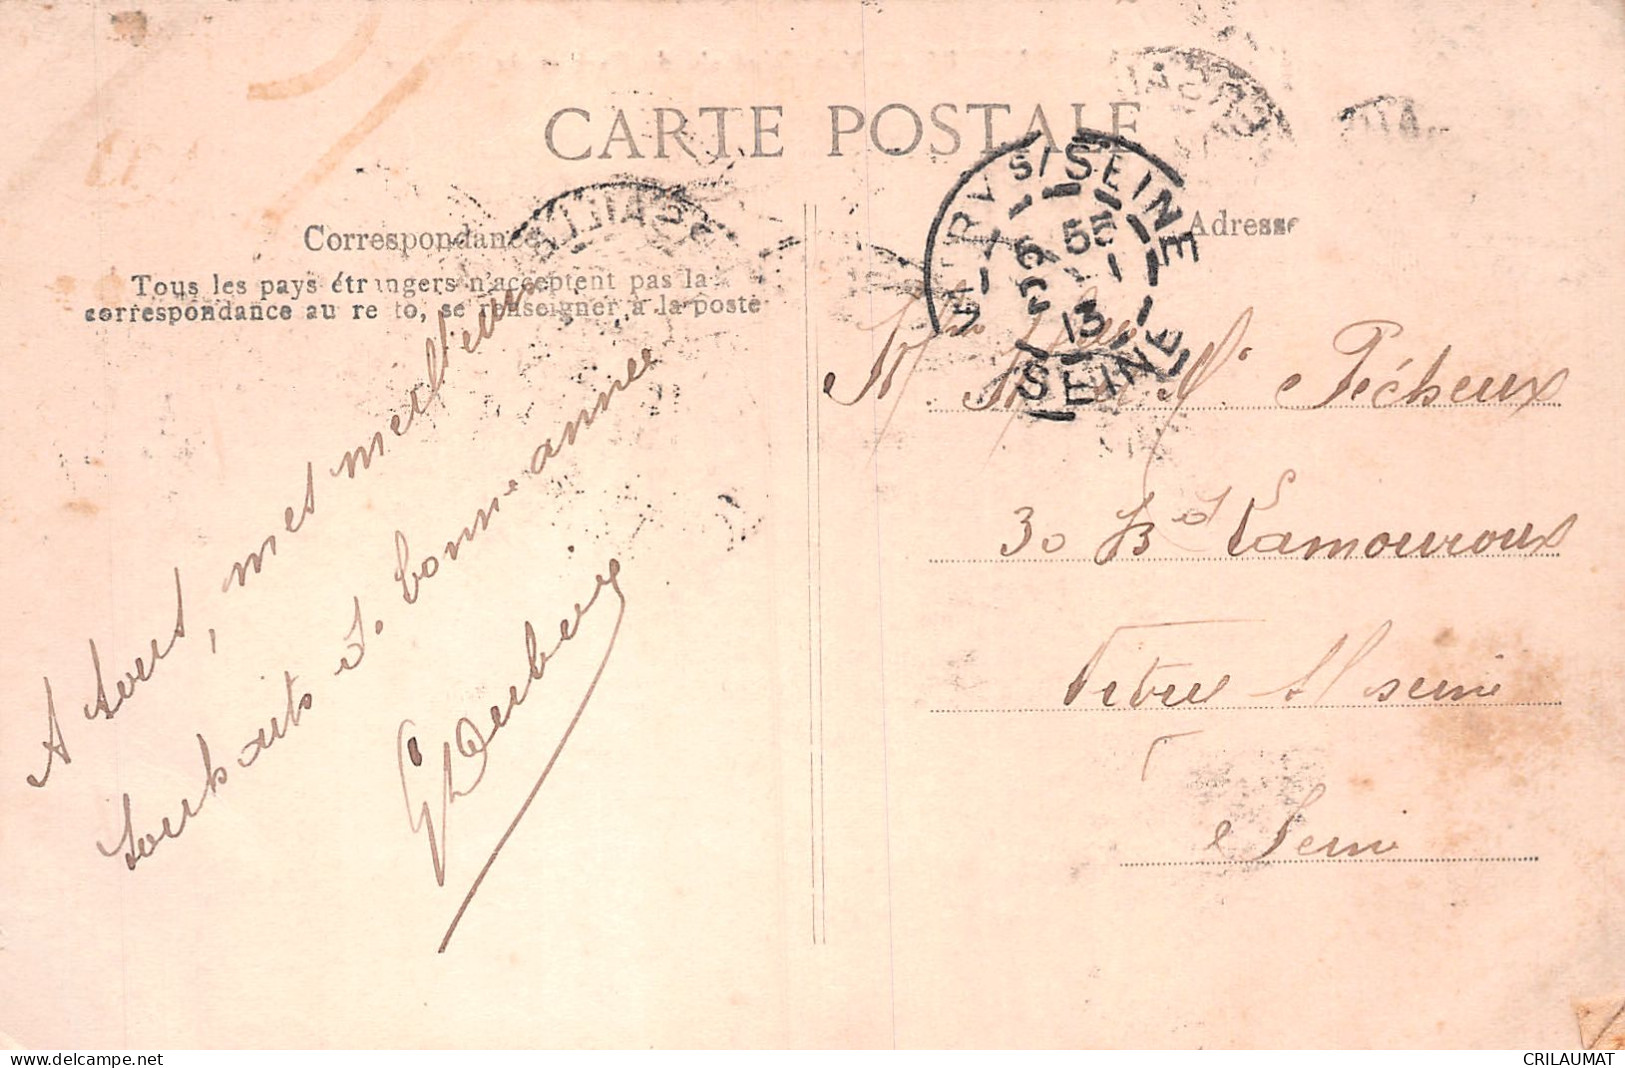 CARTE POSTALE
Correspondance
Adresse
Tous les pays étrangers n'acceptent pas la
correspondance au recto, se renseigner à la poste
A tous, mes meilleurs
souhaits de bonne année
VITRY S/ SEINE
5 55
13
SEINE
Mme Melle Mr Pécheux
30 Bd Lamouroux
Vitry s/ seine
Seine
CRILAUMAT